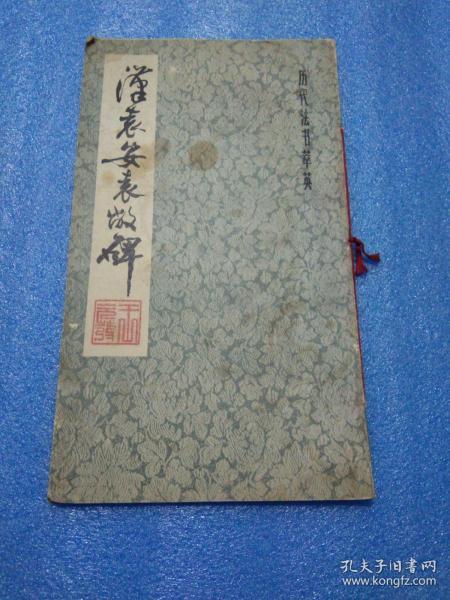 漢袁安袁敞碑
历代法书萃英
孔夫子旧书网
www.kongfz.com